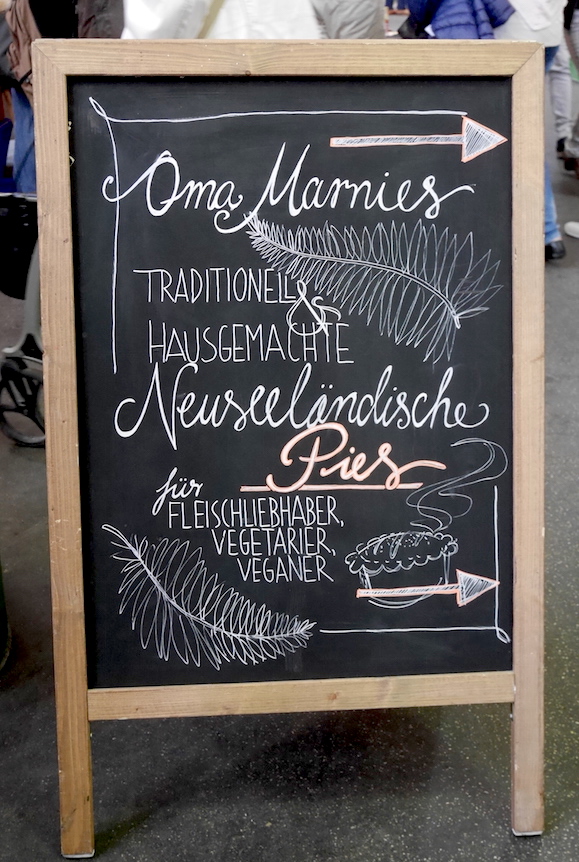 Oma Marnies
TRADITIONELL &
HAUSGEMACHTE
Neuseeländische
Pies
für
FLEISCHLIEBHABER,
VEGETARIER,
VEGANER